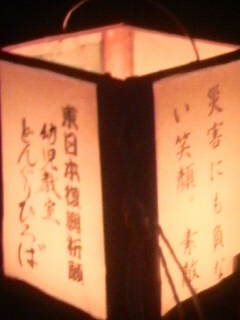 東日本復興祈願
幼児教室
どんぐりひろば
災害にも負な
い笑顔。素敵